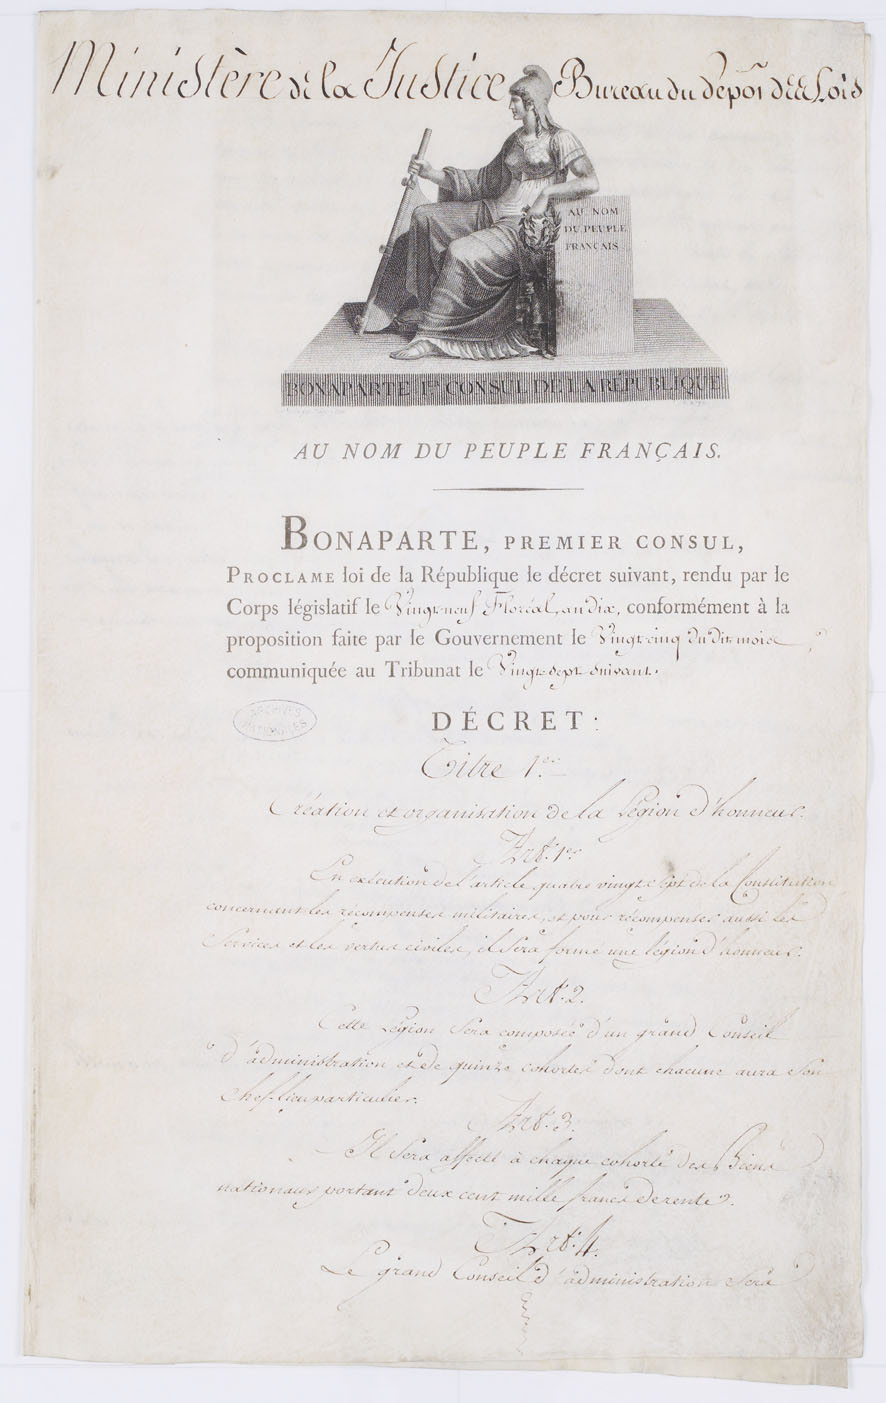 Ministère de la Justice Bureau du dépôt des Lois
AU NOM
DU PEUPLE
FRANÇAIS
BONAPARTE I.er CONSUL DE LA RÉPUBLIQUE
AU NOM DU PEUPLE FRANÇAIS.
BONAPARTE, PREMIER CONSUL,
PROCLAME loi de la République le décret suivant, rendu par le
Corps législatif le Vingt-neuf Floréal, an dix, conformément à la
proposition faite par le Gouvernement le Vingt cinq du dit mois,
communiquée au Tribunat le Vingt-sept suivant.
ARCHIVES
NATIONALES
DÉCRET:
Titre 1.er
Création et organisation de la Légion d'honneur.
Art. 1.er
En exécution de l'article quatre vingt sept de la Constitution
concernant les récompenses militaires, et pour récompenser aussi les
Services et les vertus civiles, il Sera formé une légion d'honneur.
Art. 2.
Cette Légion Sera composée d'un grand Conseil
d'administration et de quinze cohortes dont chacune aura Son
Chef-lieu particulier.
Art. 3.
Il Sera affecté à chaque cohorte des Biens
nationaux portant deux cent mille francs de rente.
Art. 4.
Le grand Conseil d'administration Sera